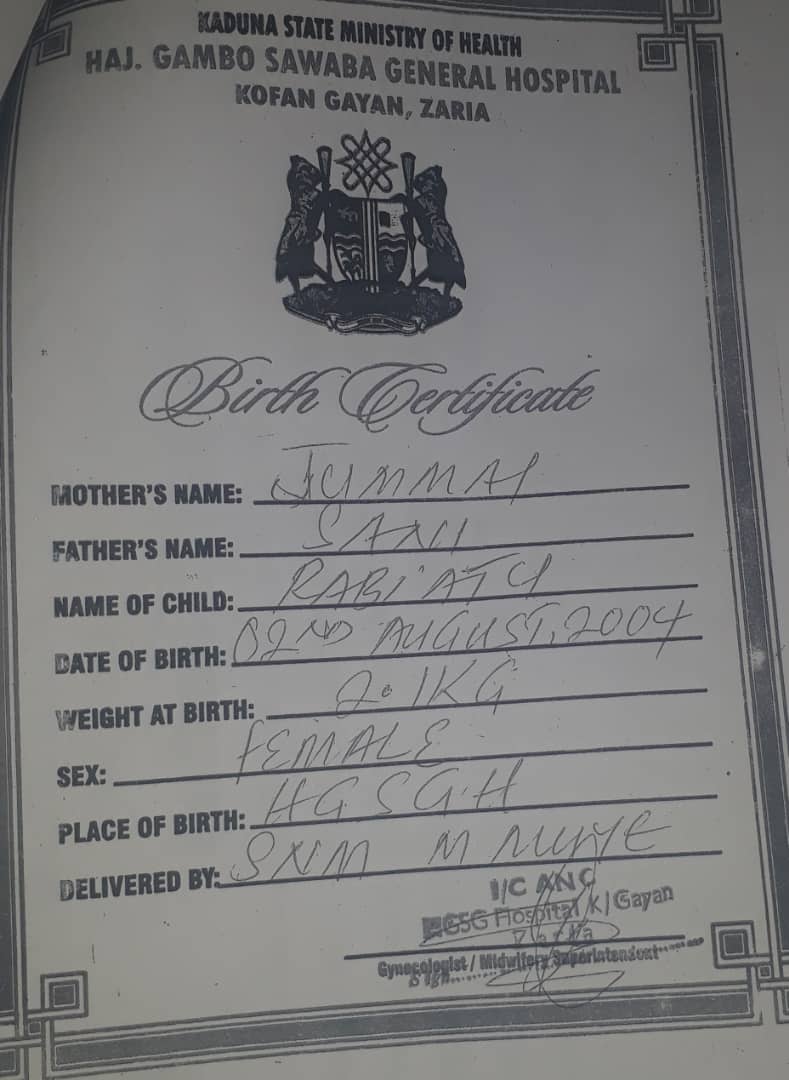 KADUNA STATE MINISTRY OF HEALTH
HAJ. GAMBO SAWABA GENERAL HOSPITAL
KOFAN GAYAN, ZARIA
Birth Certificate
MOTHER'S NAME: JUMMAI
FATHER'S NAME: SANI
NAME OF CHILD: RABI'ATU
DATE OF BIRTH: 02ND AUGUST, 2004
WEIGHT AT BIRTH: 2.1KG
SEX: FEMALE
PLACE OF BIRTH: HGSGH
DELIVERED BY: SNM M
I/C ANC
HGSG Hospital K/Gayan
Gynecologist / Midwifery Superintendent